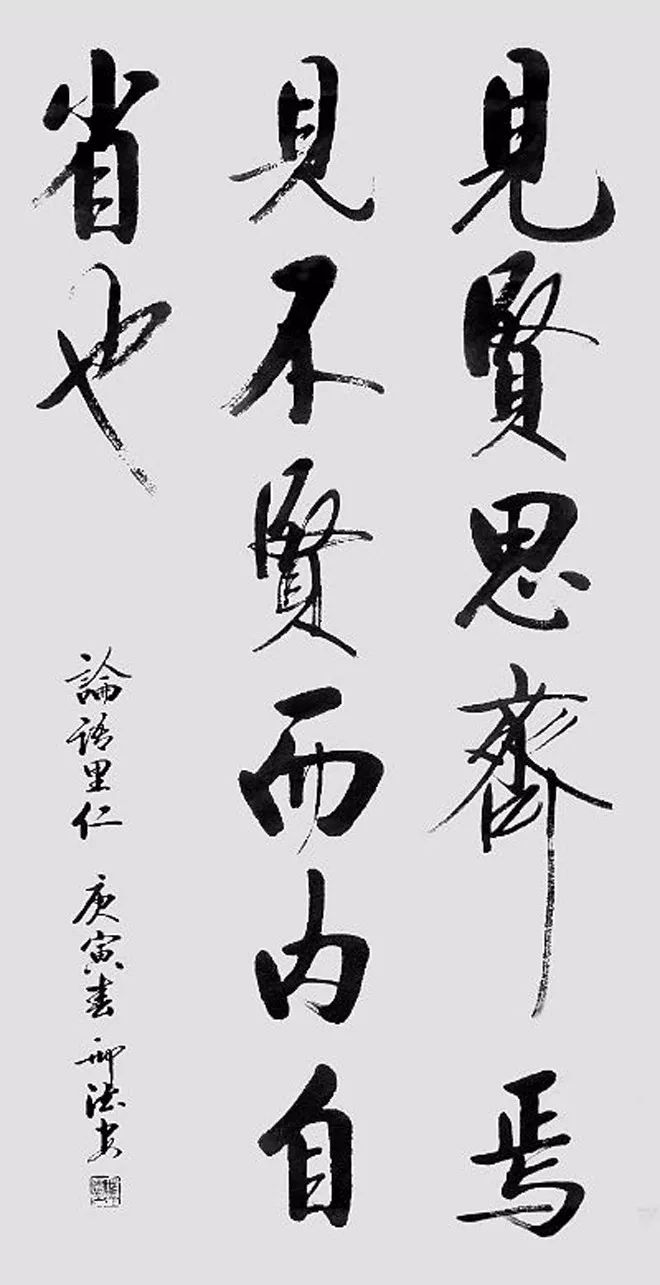 見賢思齊焉
見不賢而内自
省也
論語里仁 庚寅春